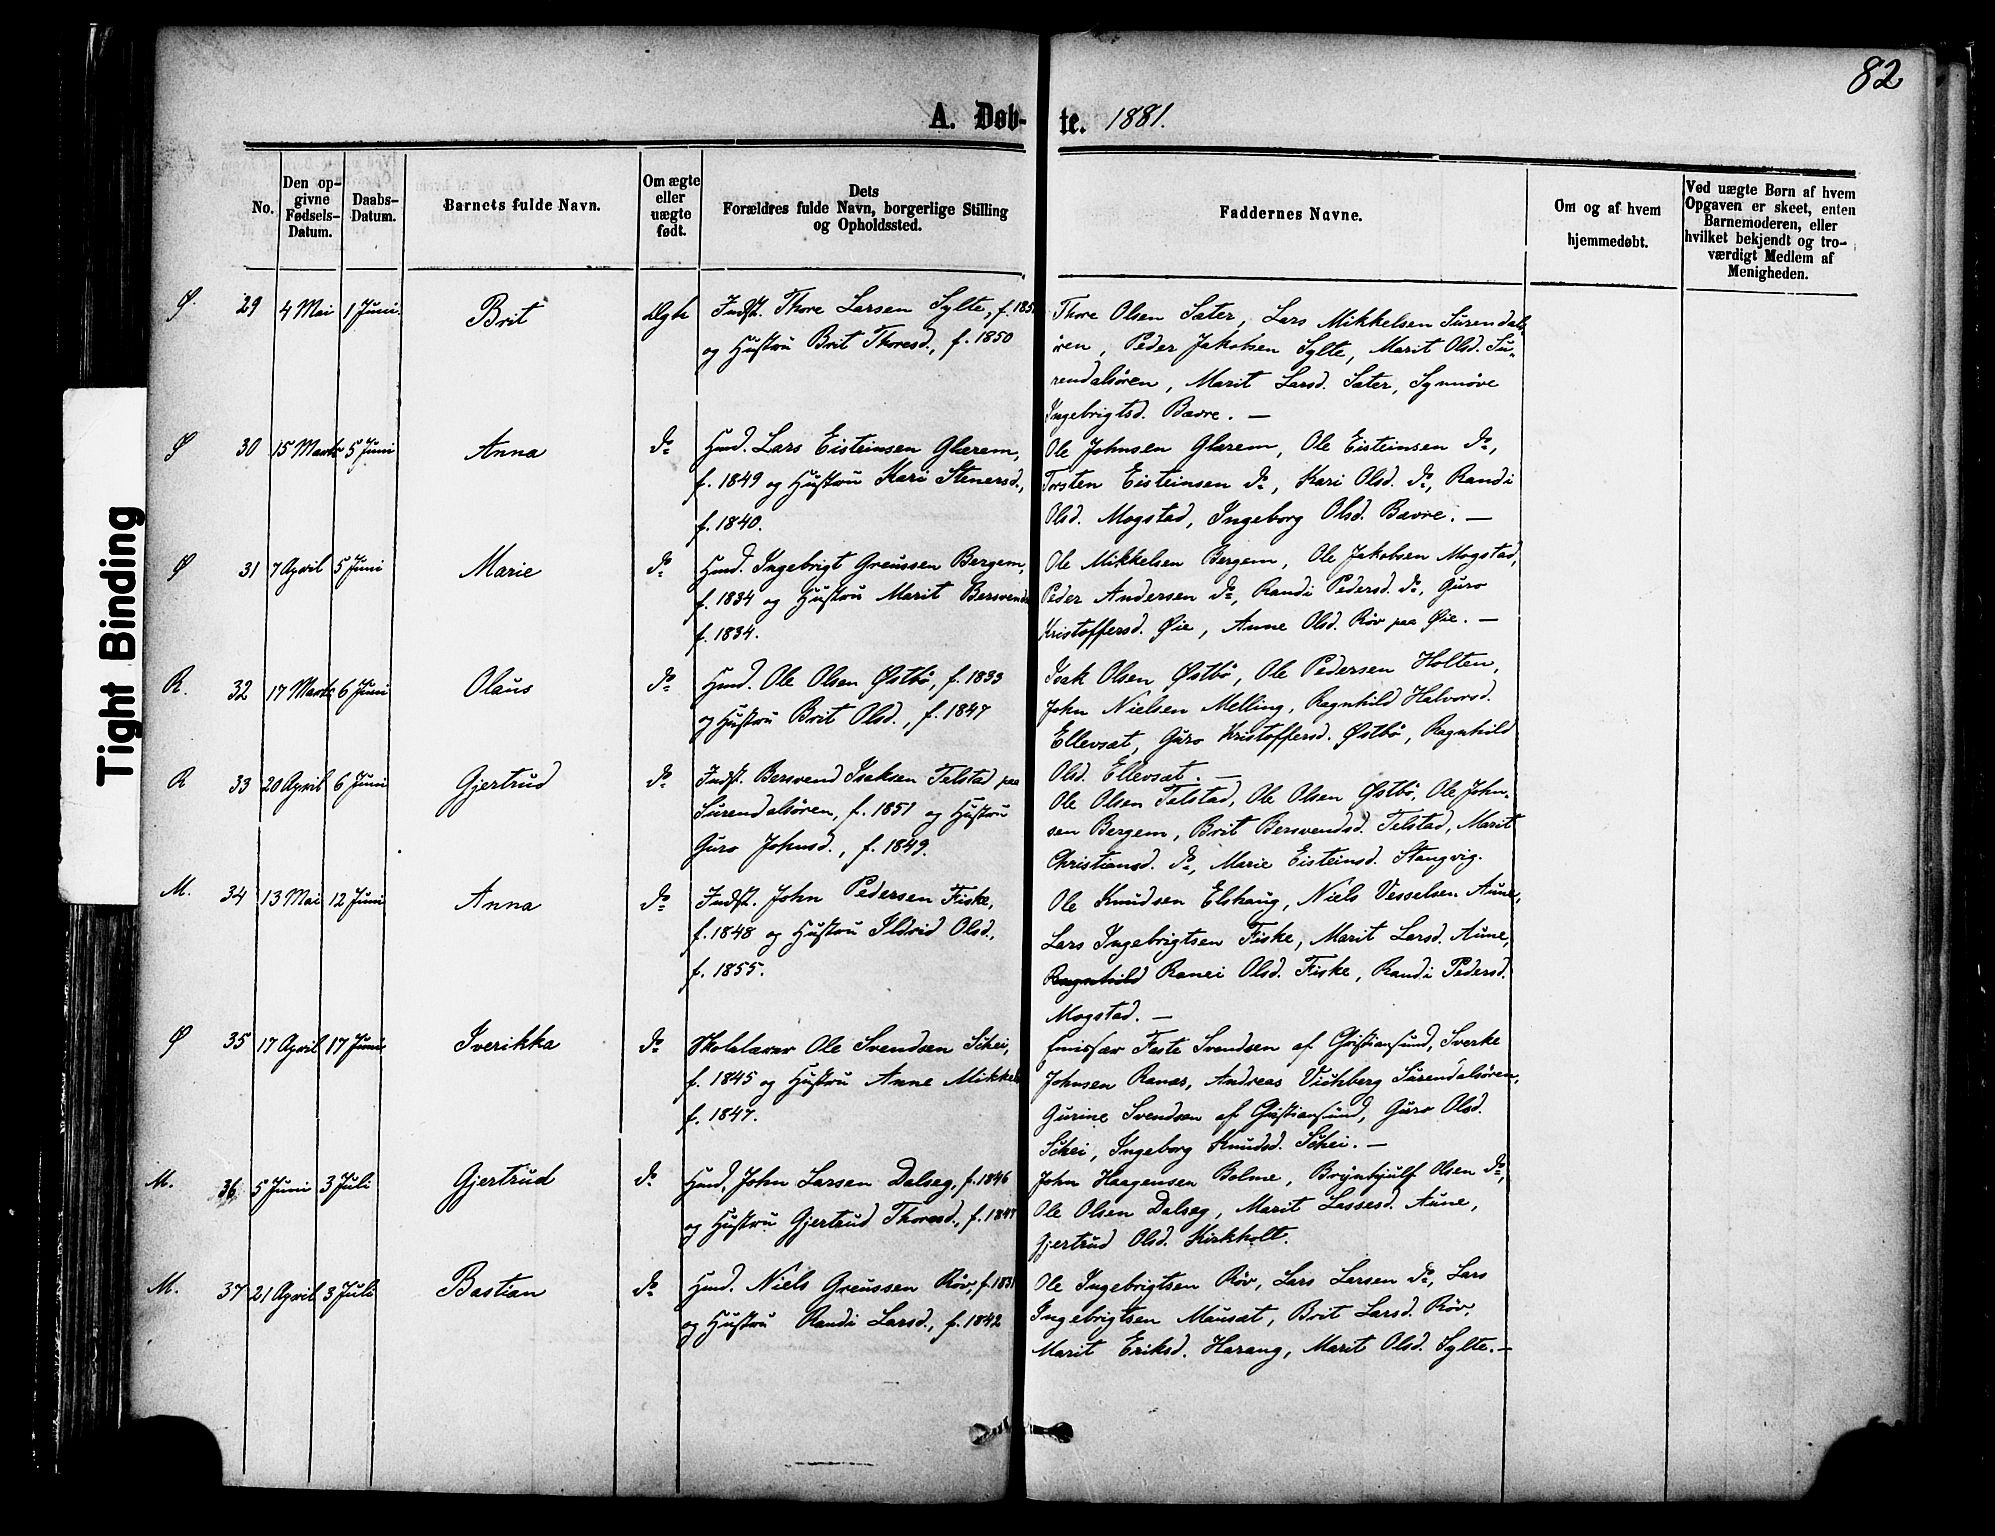 82
A. Døbte. 1881.
No.
Den opgivne Fødsels-Datum.
Daabs-Datum.
Barnets fulde Navn.
Om ægte eller uægte født.
Dets Forældres fulde Navn, borgerlige Stilling og Opholdssted.
Faddernes Navne.
Om og af hvem hjemmedøbt.
Ved uægte Børn af hvem Opgaven er skeet, enten Barnemoderen, eller hvilket bekjendt og troværdigt Medlem af Menigheden.
Tight Binding
Ø. 29 4 Mai 1 Juni Brit ægte
Indst. Thore Larsen Sylte, f. 185
og Hustru Brit Thoresd., f. 1850
Thore Olsen Sæter, Lars Mikkelsen Surendals-
ören, Peder Jakobsen Sylte, Marit Olsd. Su-
rendalsören, Marit Larsd. Sæter, Synnöve
Ingebrigtsd. Bævre. —
Ø 30 15 Marts 5 Juni Anna do
Gmd. Lars Eisteinsen Glærem,
f. 1849 og Hustru Kari Stenersd.,
f. 1840.
Ole Johnsen Glærem, Ole Eisteinsen do,
Torsten Eisteinsen do, Kari Olsd. do, Randi
Olsd. Mogstad, Ingeborg Olsd. Bævre. —
Ø 31 7 April 5 Juni Marie do
Gmd. Ingebrigt Greussen Bergem,
f. 1834 og Hustru Marit Bersvends
f. 1834.
Ole Mikkelsen Bergem, Ole Jakobsen Mogstad,
Peder Andersen do, Randi Pedersd. do, Guro
Kristoffersd. Øie, Anne Olsd. Röv paa Øie. —
R. 32 17 Marts 6 Juni Olaus do
Gmd. Ole Olsen Østbö, f. 1833
og Hustru Brit Olsd., f. 1847
Isak Olsen Østbö, Ole Pedersen Holten,
John Nielsen Melling, Ragnhild Halvorsd.
Ellevsæt, Guro Kristoffersd. Østbö, Ragnhild
Olsd. Ellevsæt. —
R 33 20 April 6 Juni Gjertrud do
Indst. Bersvend Isaksen Telstad paa
Surendalsören, f. 1851 og Hustru
Guro Johnsd., f. 1849.
Ole Olsen Telstad, Ole Olsen Østbö, Ole John-
sen Bergem, Brit Bersvendsd. Telstad, Marit
Christiansd. do, Marie Eisteinsd. Stangvig.
M. 34 13 Mai 12 Juni Anna do
Indst. John Pedersen Fiske,
f. 1848 og Hustru Ildrid Olsd.,
f. 1855.
Ole Knudsen Elshaug, Niels Vesselsen Aune,
Lars Ingebrigtsen Fiske, Marit Larsd. Aune,
Ragnhild Ranei Olsd. Fiske, Randi Pedersd.
Mogstad. —
Ø 35 17 April 17 Juni Iverikka do
Skolelærer Ole Svendsen Schei,
f. 1845 og Hustru Anne Mikkels
f. 1847.
Emissær Faste Svendsen af Christiansund, Sverke
Johnsen Ranæs, Andreas Vichberg Surendalsören,
Gurine Svendsen af Christiansund, Guro Olsd.
Schei, Ingeborg Knudsd. Schei. —
M. 36 5 Juni 3 Juli Gjertrud do
Gmd. John Larsen Dalsæg, f. 1846
og Hustru Gjertrud Thoresd., f. 1847
John Haagensen Bolme, Brynhjulf Olsen do,
Ole Olsen Dalsæg, Marit Lassesd. Aune,
Gjertrud Olsd. Kirkholt.
M. 37 21 April 3 Juli Bastian do
Gmd. Niels Greussen Röv, f. 1831
og Hustru Randi Larsd., f. 1842
Ole Ingebrigtsen Röv, Lars Larsen do, Lars
Ingebrigtsen Mausæt, Brit Larsd. Röv,
Marit Eriksd. Harang, Marit Olsd. Sylte. —